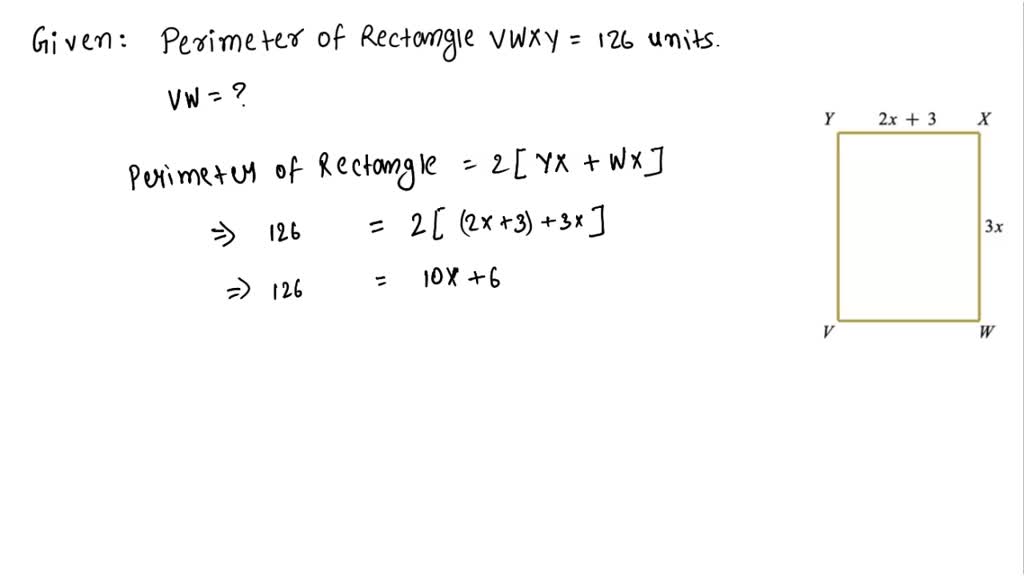 Given: Perimeter of Rectangle VWXY = 126 units.
VW = ?
Perimeter of Rectangle = 2[YX + WX]
⇒ 126 = 2[(2x+3)+3x]
⇒ 126 = 10x+6
Y 2x + 3 X
3x
V W